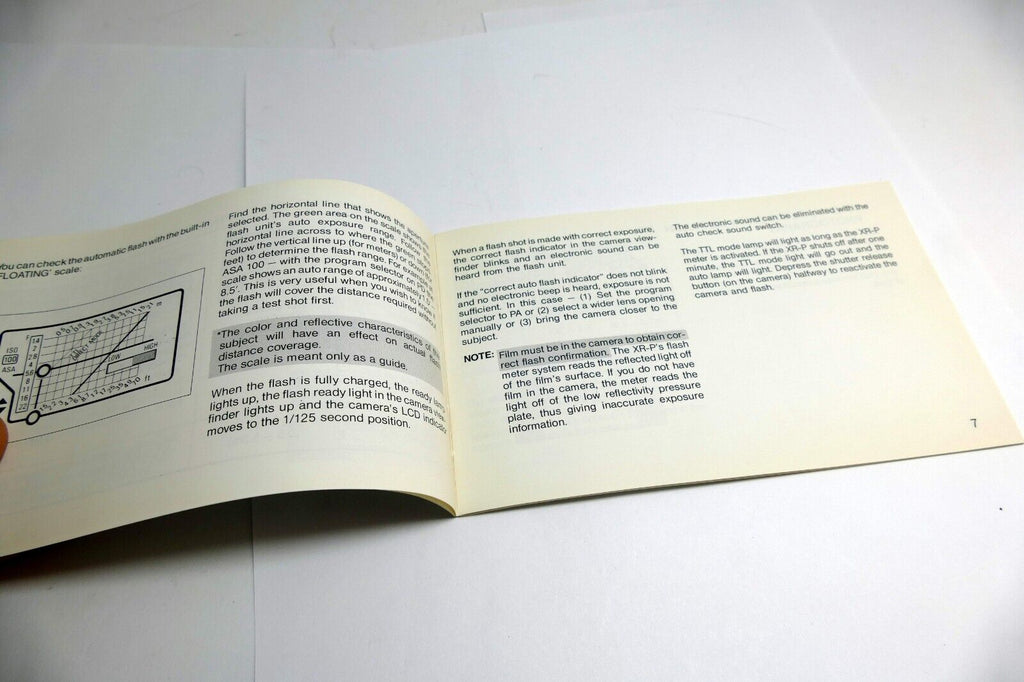 You can check the automatic flash with the built-in
FLOATING' scale:
ISO
100
ASA
14
2
28
4
56
8
16
22
m
LOW
HIGH
ft
Find the horizontal line that shows the
selected. The green area on the scale shows
flash unit's auto exposure range. Follow
horizontal line across to where the green
Follow the vertical line up (for meters) or
feet) to determine the flash range. For
ASA 100 — with the program selector on
scale shows an auto range of approximately
8.5'. This is very useful when you wish to know
the flash will cover the distance required
taking a test shot first.
*The color and reflective characteristics of
subject will have an effect on actual
distance coverage.
The scale is meant only as a guide.
When the flash is fully charged, the ready
lights up, the flash ready light in the camera
finder lights up and the camera's LCD
moves to the 1/125 second position.
When a flash shot is made with correct exposure,
the correct flash indicator in the camera view-
finder blinks and an electronic sound can be
heard from the flash unit.
If the "correct auto flash indicator" does not blink
and no electronic beep is heard, exposure is not
sufficient. In this case — (1) Set the program
selector to PA or (2) select a wider lens opening
manually or (3) bring the camera closer to the
subject.
NOTE: Film must be in the camera to obtain cor-
rect flash confirmation. The XR-P's flash
meter system reads the reflected light off
of the film's surface. If you do not have
film in the camera, the meter reads the
light off of the low reflectivity pressure
plate, thus giving inaccurate exposure
information.
The electronic sound can be eliminated with the
auto check sound switch.
The TTL mode lamp will light as long as the XR-P
meter is activated. If the XR-P shuts off after one
minute, the TTL mode light will go out and the
auto lamp will light. Depress the shutter release
button (on the camera) halfway to reactivate the
camera and flash.
7